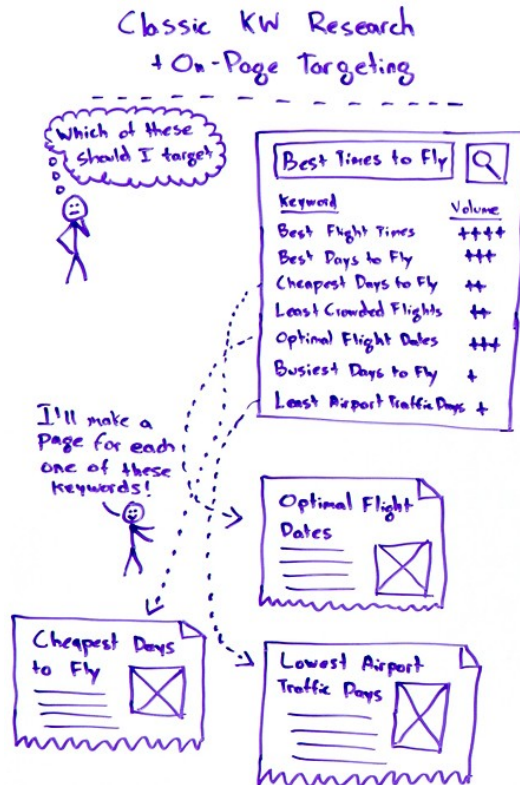 Classic KW Research
+ On-Page Targeting
Which of these
should I target
Best Times to Fly
Keyword Volume
Best Flight Times ++++
Best Days to Fly +++
Cheapest Days to Fly ++
Least Crowded Flights ++
Optimal Flight Dates +++
Busiest Days to Fly +
Least Airport Traffic Days +
I'll make a
page for each
one of these
keywords!
Optimal Flight
Dates
Cheapest Days
to Fly
Lowest Airport
Traffic Days